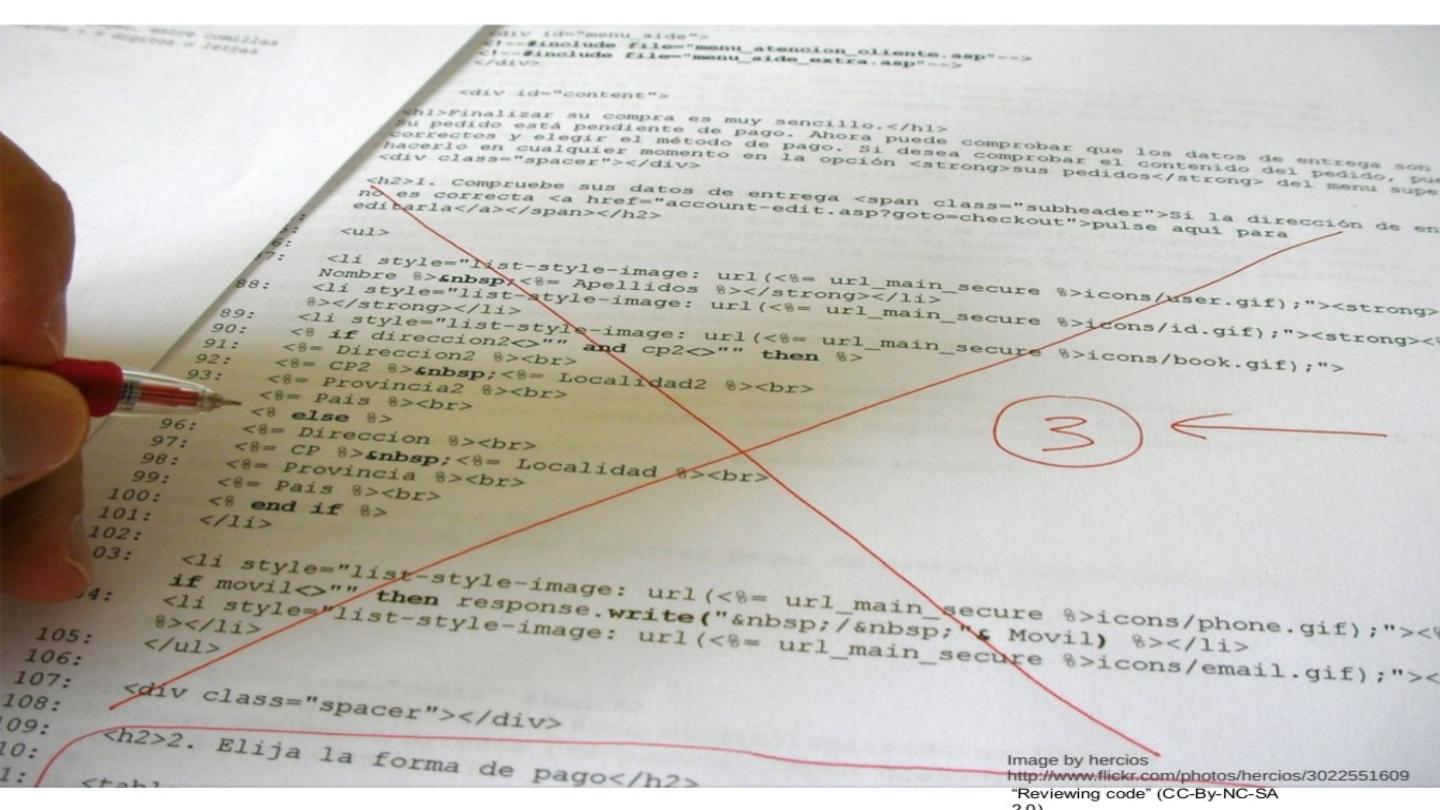 <div id="menu_side">
<!--#include file="menu_atencion_cliente.asp"-->
<!--#include file="menu_side_extra.asp"-->
</div>
<div id="content">
<h1>Finalizar su compra es muy sencillo.</h1>
Su pedido está pendiente de pago. Ahora puede comprobar que los datos de entrega son
correctos y elegir el método de pago. Si desea comprobar el contenido del pedido,
hacerlo en cualquier momento en la opción <strong>sus pedidos</strong> del menu
<div class="spacer"></div>
<h2>1. Compruebe sus datos de entrega <span class="subheader">Si la dirección de
no es correcta <a href="account-edit.asp?goto=checkout">pulse aquí para
editarla</a></span></h2>
<ul>
<li style="list-style-image: url(<%= url_main_secure %>icons/user.gif);"><strong>
Nombre %>&nbsp;<%= Apellidos %></strong></li>
88: <li style="list-style-image: url(<%= url_main_secure %>icons/id.gif);"><strong>
%></strong></li>
89: <li style="list-style-image: url(<%= url_main_secure %>icons/book.gif);">
90: <% if direccion2<>"" and cp2<>"" then %>
91: <%= Direccion2 %><br>
92: <%= CP2 %>&nbsp;<%= Localidad2 %><br>
93: <%= Provincia2 %><br>
<%= Pais %><br>
<% else %>
96: <%= Direccion %><br>
97: <%= CP %>&nbsp;<%= Localidad %><br>
98: <%= Provincia %><br>
99: <%= Pais %><br>
100: <% end if %>
101: </li>
102:
03: <li style="list-style-image: url(<%= url_main_secure %>icons/phone.gif);"><%
if movil<>"" then response.write("&nbsp;/&nbsp;"& Movil) %></li>
4: <li style="list-style-image: url(<%= url_main_secure %>icons/email.gif);"><
%></li>
105: </ul>
106:
107: <div class="spacer"></div>
108:
109: <h2>2. Elija la forma de pago</h2>
10:
1: <tabl
3
Image by hercios
http://www.flickr.com/photos/hercios/3022551609
“Reviewing code” (CC-By-NC-SA
2.0)